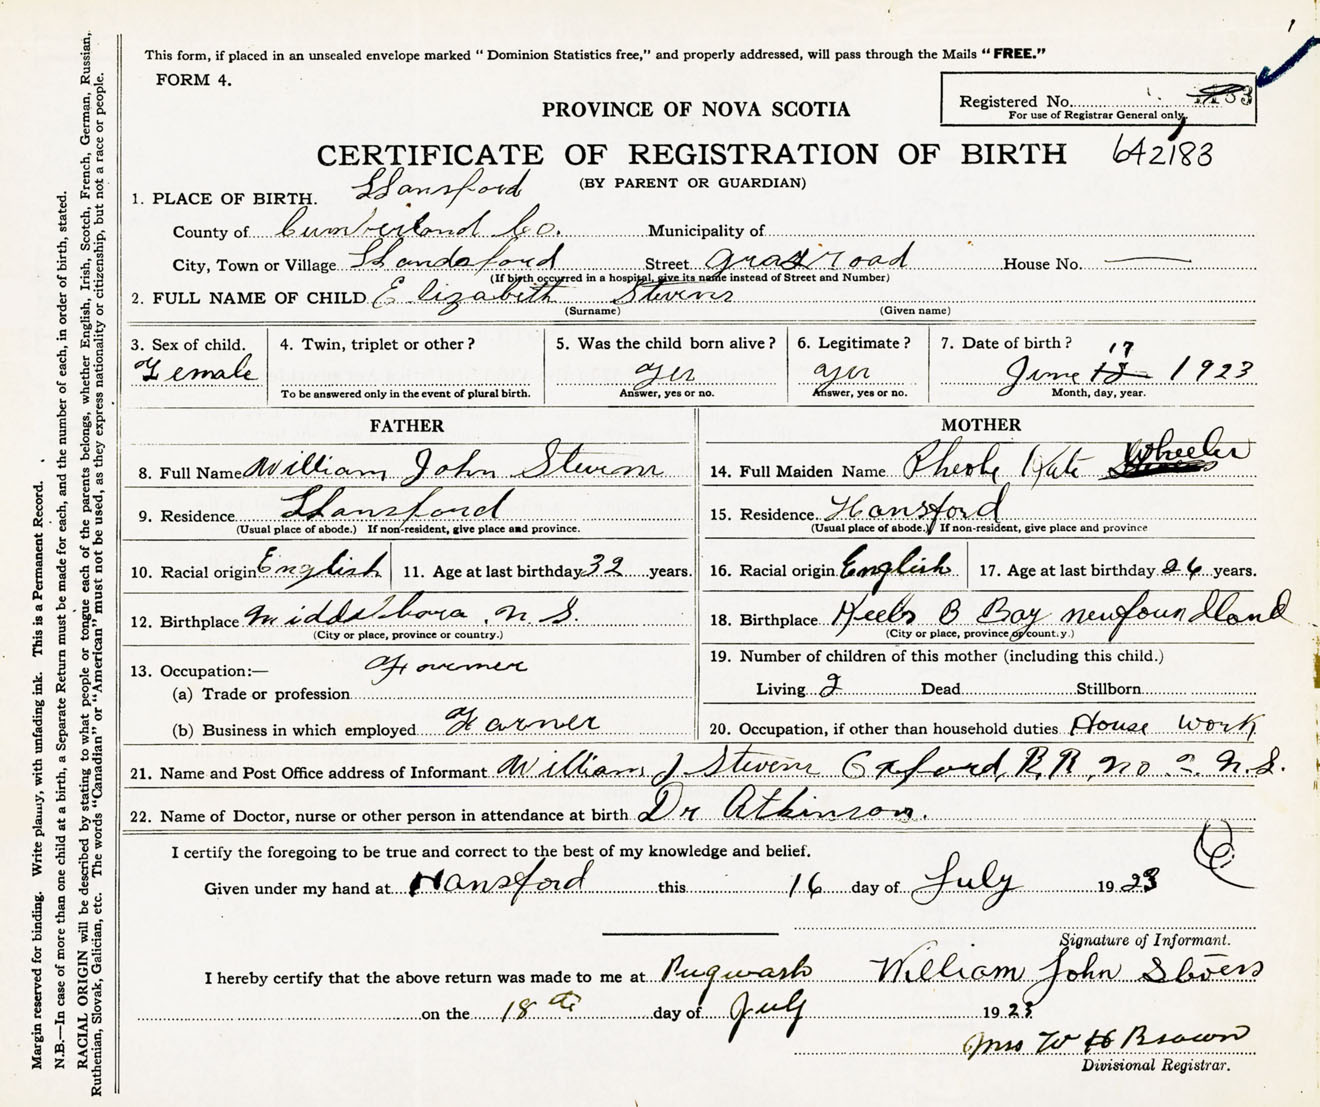 This form, if placed in an unsealed envelope marked "Dominion Statistics free," and properly addressed, will pass through the Mails "FREE."
FORM 4.
Registered No.
For use of Registrar General only.
PROVINCE OF NOVA SCOTIA
CERTIFICATE OF REGISTRATION OF BIRTH 642183
(BY PARENT OR GUARDIAN)
1. PLACE OF BIRTH. Hansford
County of Cumberland Co. Municipality of
City, Town or Village Handsford Street Gray road House No. —
(If birth occurred in a hospital, give its name instead of Street and Number)
2. FULL NAME OF CHILD Elizabeth Stevens
(Surname) (Given name)
3. Sex of child. 4. Twin, triplet or other? 5. Was the child born alive? 6. Legitimate? 7. Date of birth?
Female yes yes June 17 1923
To be answered only in the event of plural birth. Answer, yes or no. Answer, yes or no. Month, day, year.
FATHER MOTHER
8. Full Name William John Stevens
14. Full Maiden Name Pheobe Kate Wheeler
9. Residence Hansford
(Usual place of abode.) If non-resident, give place and province.
15. Residence. Hansford
(Usual place of abode.) If non-resident, give place and province
10. Racial origin English 11. Age at last birthday 32 years.
16. Racial origin English 17. Age at last birthday 26 years.
12. Birthplace Middleboro N.S.
(City or place, province or country.)
18. Birthplace Keels B Bay newfoundland
(City or place, province or country.)
13. Occupation:— Farmer
(a) Trade or profession
(b) Business in which employed Farmer
19. Number of children of this mother (including this child.)
Living 2 Dead Stillborn
20. Occupation, if other than household duties House work
21. Name and Post Office address of Informant William J Stevens Oxford, R.R. no 2 N.S.
22. Name of Doctor, nurse or other person in attendance at birth Dr Atkinson.
I certify the foregoing to be true and correct to the best of my knowledge and belief.
Given under my hand at Hansford this 16 day of July 1923
Signature of Informant.
I hereby certify that the above return was made to me at Pugwash William John Stevens
on the 18th day of July 1923
Mrs W H Brown
Divisional Registrar.
Margin reserved for binding. Write plainly, with unfading ink. This is a Permanent Record.
N.B.—In case of more than one child at a birth, a Separate Return must be made for each, and the number of each, in order of birth, stated.
RACIAL ORIGIN will be described by stating to what people or tongue each of the parents belongs, whether English, Irish, Scotch, French, German, Russian,
Ruthenian, Slovak, Galician, etc. The words "Canadian" or "American" must not be used, as they express nationality or citizenship, but not a race or people.